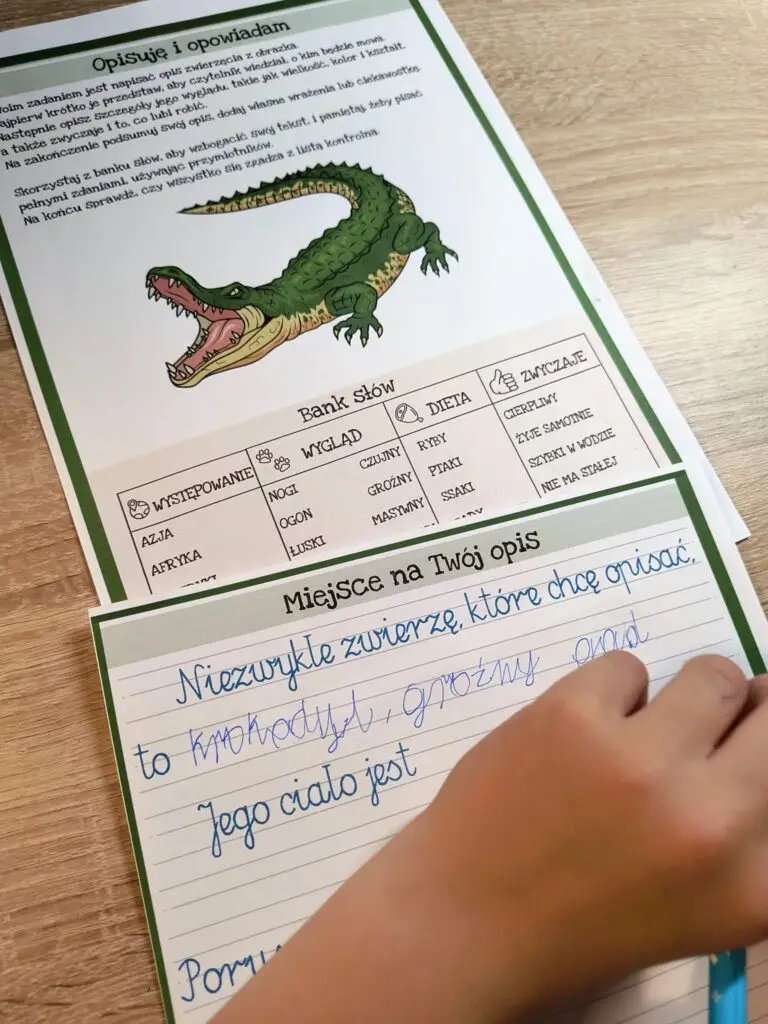 Opisuję i opowiadam
oim zadaniem jest napisać opis zwierzęcia z obrazka.
ajpierw krótko je przedstaw, aby czytelnik wiedział, o kim będzie mowa.
Następnie opisz szczegóły jego wyglądu, takie jak wielkość, kolor i kształt,
a także zwyczaje i to, co lubi robić.
Na zakończenie podsumuj swój opis, dodaj własne wrażenia lub ciekawostkę.
Skorzystaj z banku słów, aby wzbogacić swój tekst, i pamiętaj, żeby pisać
pełnymi zdaniami, używając przymiotników.
Na końcu sprawdź, czy wszystko się zgadza z listą kontrolną.
Bank słów
WYSTĘPOWANIE WYGLĄD DIETA ZWYCZAJE
AZJA NOGI CZUJNY RYBY CIERPLIWY
AFRYKA OGON GROŹNY PTAKI ŻYJE SAMOTNIE
ŁUSKI MASYWNY SSAKI SZYBKI W WODZIE
NIE MA STAŁEJ
Miejsce na Twój opis
Niezwykłe zwierzę, które chcę opisać,
to krokodyl, groźny
Jego ciało jest
Poru